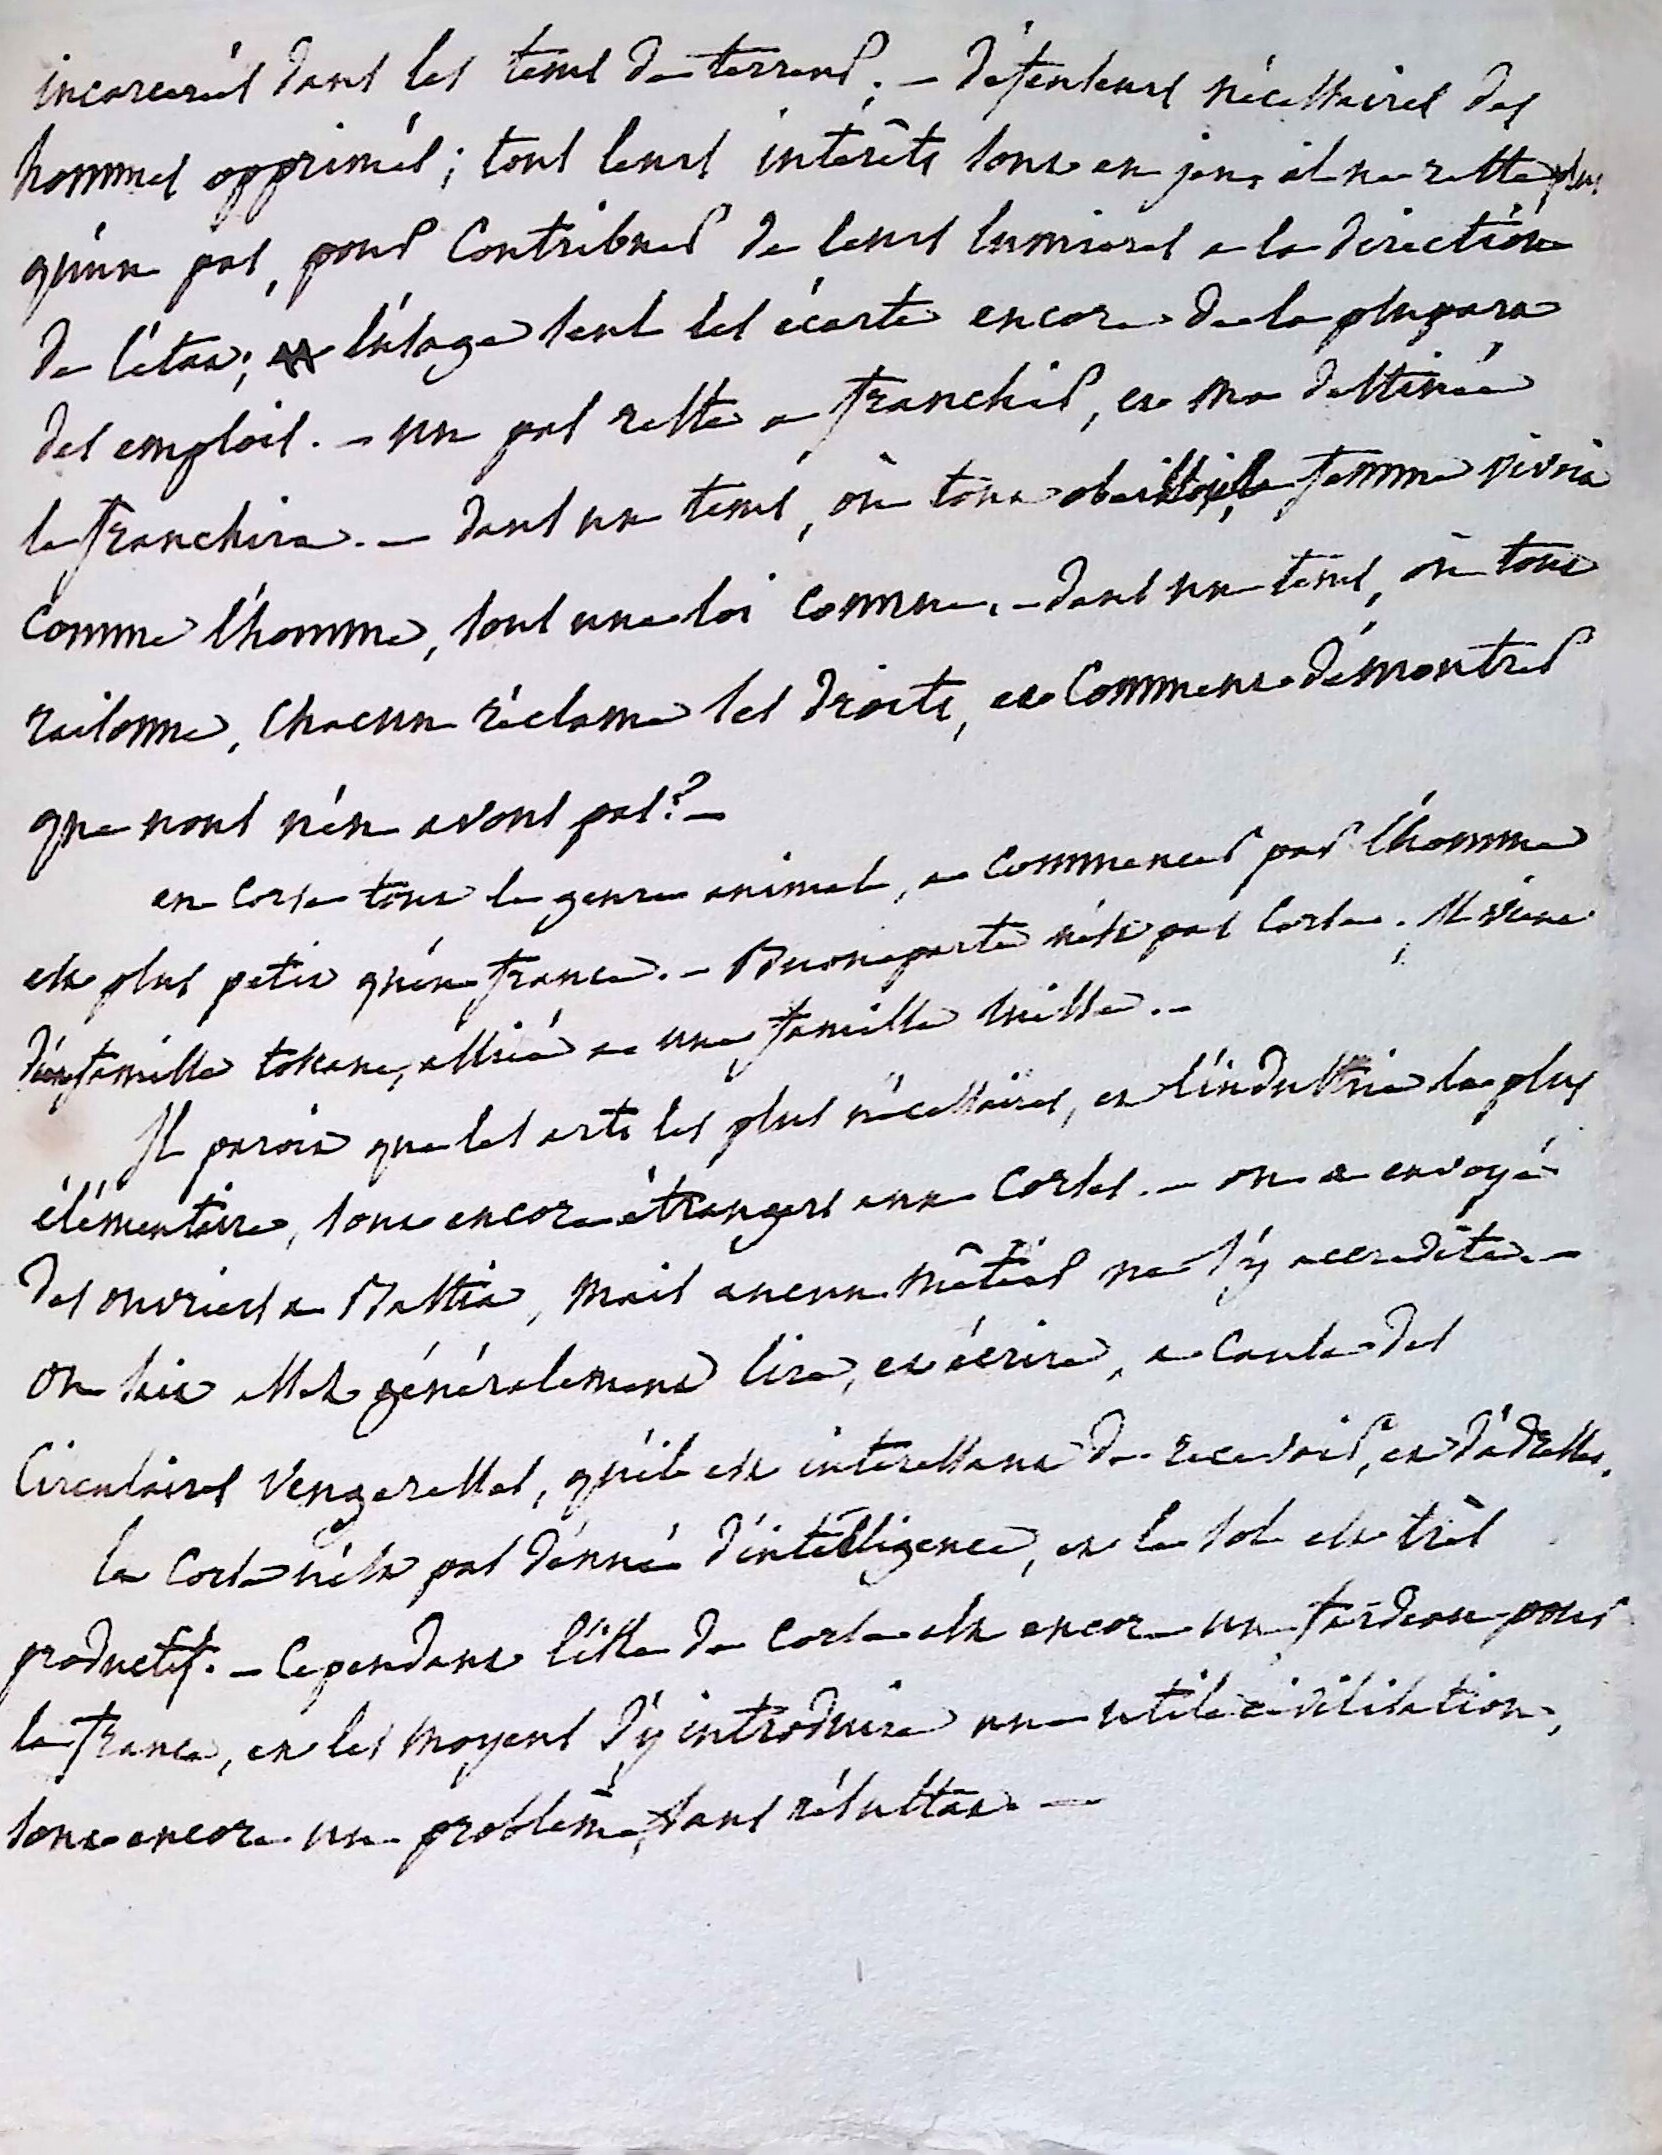 incarcerés dans les tems de terreur; – défenseurs nécessaires des
hommes opprimés; tous leurs intérêts sont en jeu, il ne reste plus
qu'un pas, pour contribuer de leurs lumieres a la direction
de l'état; l'usage seul les écarte encore de la plupart
des emplois. – un pas reste a franchir, et ma destinée
le franchira. – dans un tems, où tout obéissoit, la femme vivoit
comme l'homme, sous une loi comune. – dans un tems, où tout
raisonne, chacun réclame ses droits, et comment démontrer
que nous n'en avons pas? –
en corse tout le genre animal, a commencer par l'homme
est plus petit qu'en france. – Buonaparte n'est pas corse; il vient
d'une famille toscane, alliée a une famille suisse. –
Il paroit que les arts les plus nécessaires, et l'industrie la plus
élémentaire, sont encore étrangers aux corses. – on a envoyé
des ouvriers a Bastia, mais aucun métier ne s'y accrédite. –
on sait assez généralement lire, et écrire, a cause des
circulaires vengeresses, qu'il est interessant de recevoir, et d'adresser.
le corse n'est pas dénué d'intelligence, et le sol est très
productif. – cependant l'isle de corse est encore un fardeau pour
la france, et les moyens d'y introduire une utile civilisation,
sont encore un problème, sans résultat. –